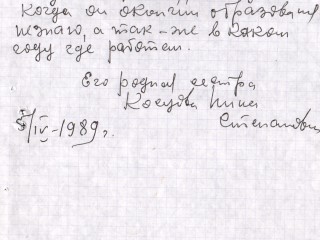 Когда он окончил образование
не знаю, а так-же в каком
году где работал.
Его родная сестра
Косудова Нина
Степановна
5/IV-1989 г.